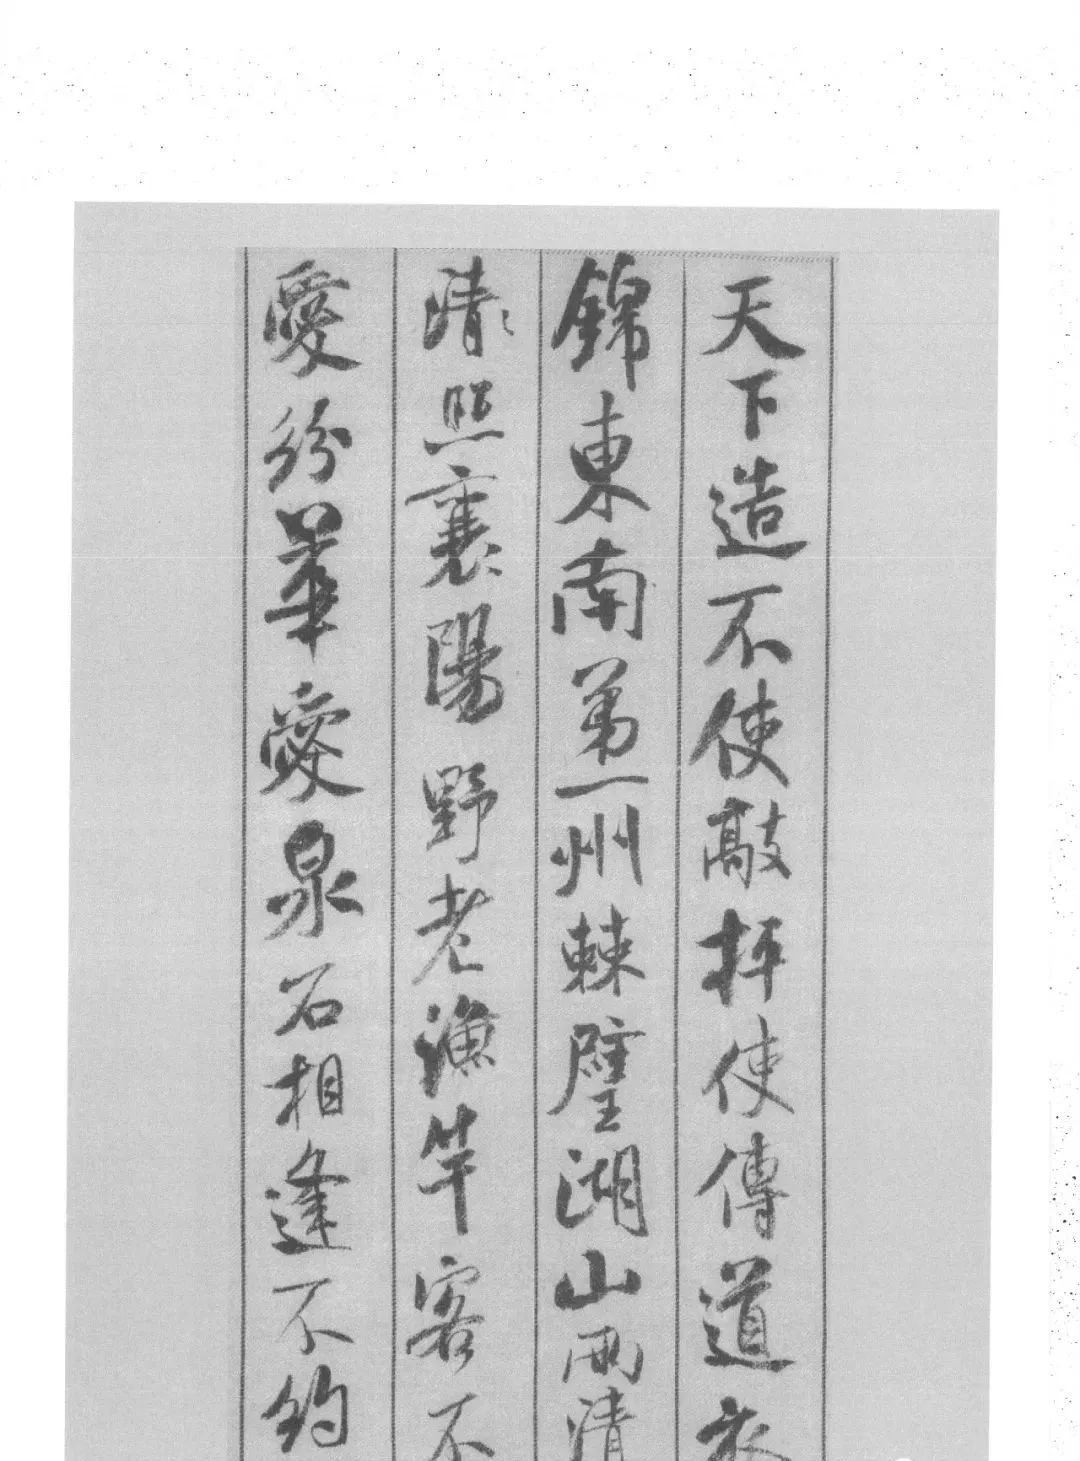 天下造不使敲枰使傳道衣
錦東南第一州棘璧湖山兩清
清照襄陽野老漁竿客不
愛紛華愛泉石相逢不約